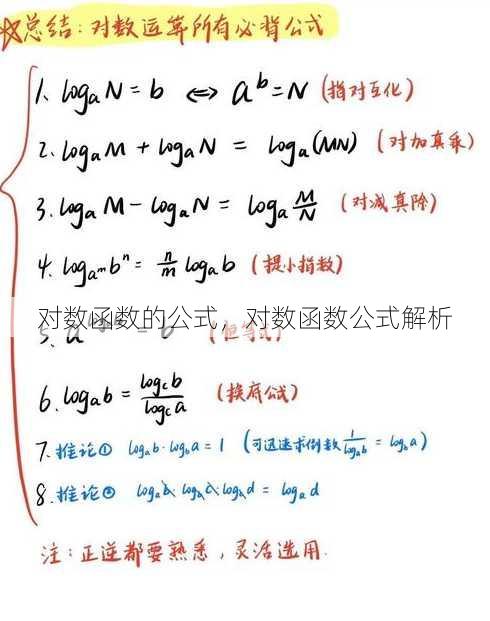 总结：对数运算所有必背公式
1. logₐN = b ⇔ aᵇ = N (指对互化)
2. logₐM + logₐN = logₐ(MN) (对加真乘)
3. logₐM - logₐN = logₐ M/N (对减真除)
4. log_{aᵐ} bⁿ = n/m logₐb (提小指数)
对数函数的公式，对数函数公式解析
5. a = b (恒等式)
6. logₐb = log_c b / log_c a (换底公式)
7. 推论① logₐb · log_b a = 1 (可迅速求倒数 1/logₐb = log_b a)
8. 推论② logₐb · log_b c · log_c d = logₐ d
注：正逆都要熟悉，灵活选用.